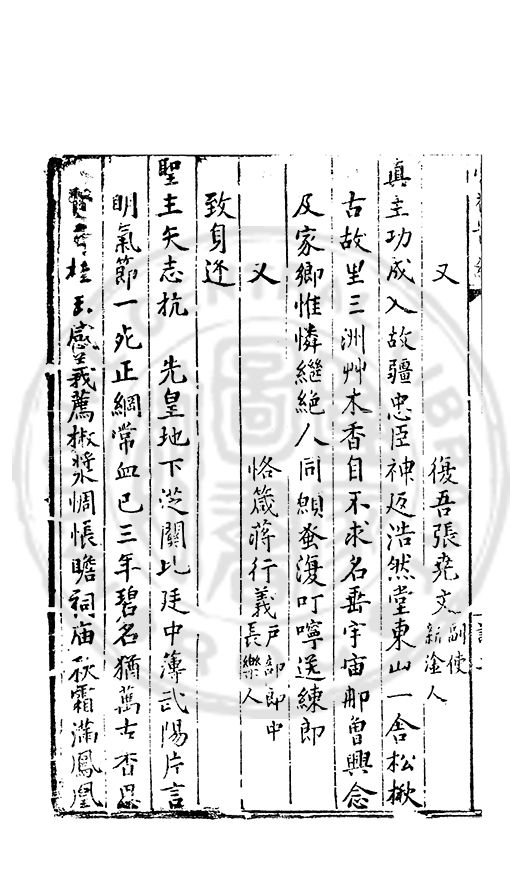 又　復吾張堯文副使新淦人
真主功成入故疆忠臣神返浩然堂東山一舍松楸
古故里三洲艸木香自不求名垂宇宙那曾興念
及家鄉惟憐繼絶人同願蚤復叮嚀送練郎
又　恪箴蔣行義戶部郎中長樂人
致身逐
聖主矢志抗　先皇地下芝關比廷中薄武陽片言
明氣節一死正綱常血已三年碧名猶萬古香恩
桂玉感義薦椒漿惆悵瞻祠庙秋霜滿鳳凰